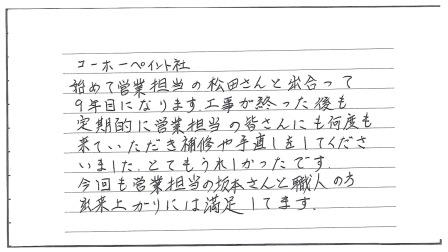 コーホーペイント社
始めて営業担当の松田さんと出合って
9年目になります.工事が終った後も
定期的に営業担当の皆さんにも何度も
来ていただき補修や手直しをしてくださ
いました.とてもうれしかったです.
今回も営業担当の坂本さんと職人の方
出来上がりには満足してます.